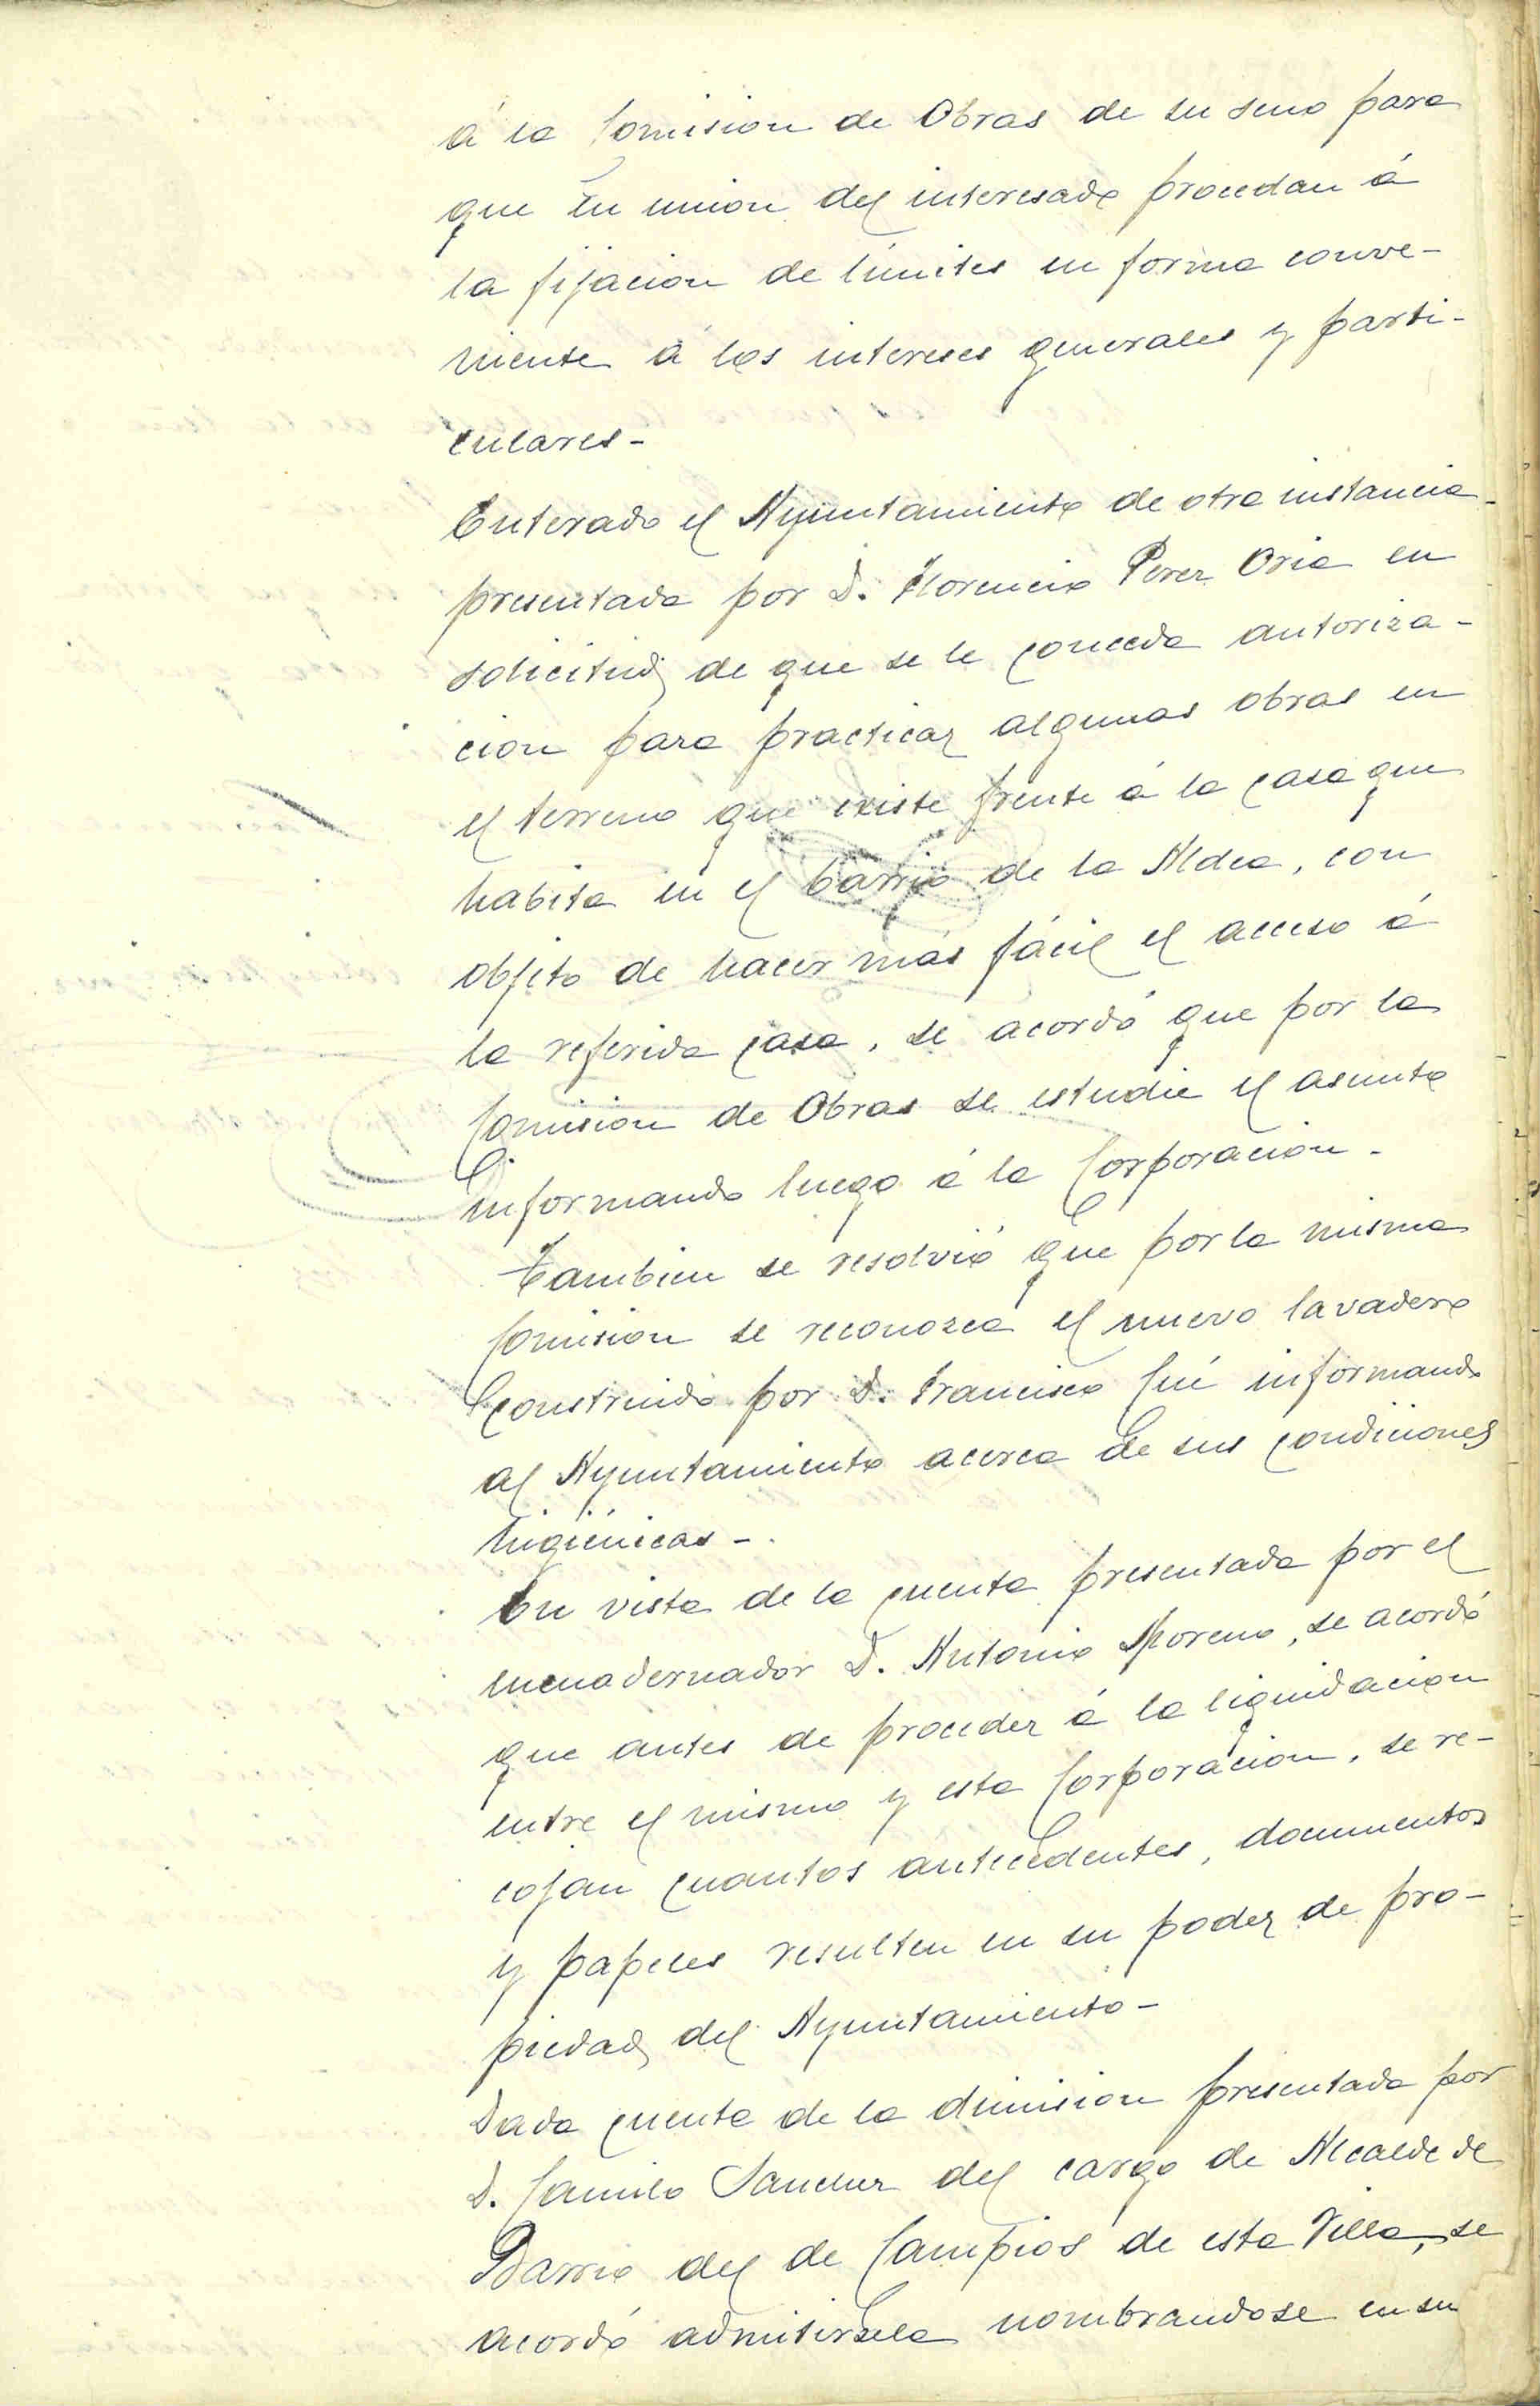 á la Comision de Obras de su seno para
que en union del interesado procedan á
la fijacion de límites en forma conve-
niente á los intereses generales y parti-
culares-
Enterado el Ayuntamiento de otra instancia
presentada por D. Florencio Perez Oria en
solicitud de que se le conceda autoriza-
cion para practicar algunas obras en
el terreno que existe frente á la casa que
habita en el barrio de la Aldea, con
objeto de hacer más fácil el acceso á
la referida casa, se acordó que por la
Comision de Obras se estudie el asunto
informando luego á la Corporacion.-
Tambien se resolvió que por la misma
Comision se reconozca el nuevo lavadero
construido por D. Francisco Cué informando
al Ayuntamiento acerca de sus condiciones
higiénicas-.
En vista de la cuenta presentada por el
encuadernador D. Antonio Moreno, se acordó
que antes de proceder á la liquidacion
entre el mismo y esta Corporacion, se re-
cojan cuantos antecedentes, documentos
y papeles resulten en su poder de pro-
piedad del Ayuntamiento-
Dada cuenta de la dimision presentada por
D. Camilo Sanchez del cargo de Alcalde de
Barrio del de Campios de esta Villa, se
acordó admitírsela nombrandose en su